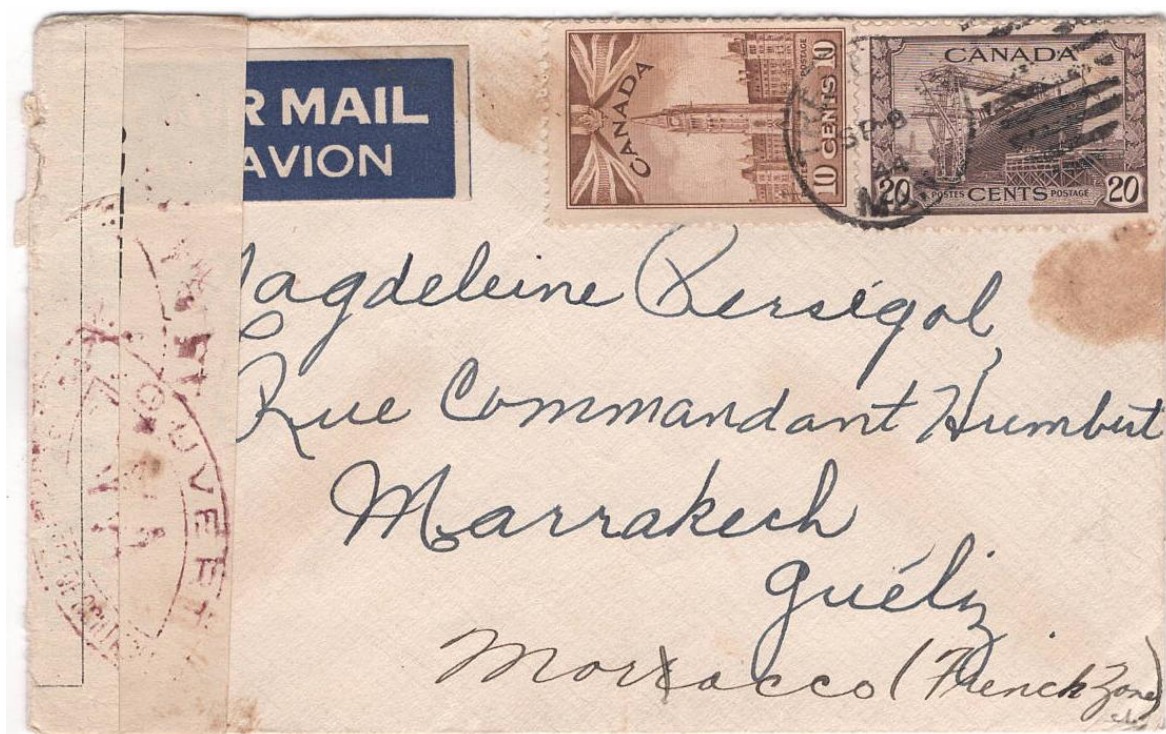 R MAIL
AVION
CANADA
10 CENTS 10
POSTAGE
CANADA
20 POSTES CENTS POSTAGE 20
SP 8
44
agdeleine Perségol,
Rue Commandant Humbert
Marrakech
Guéliz
Morocco (French Zone)
OUVERT